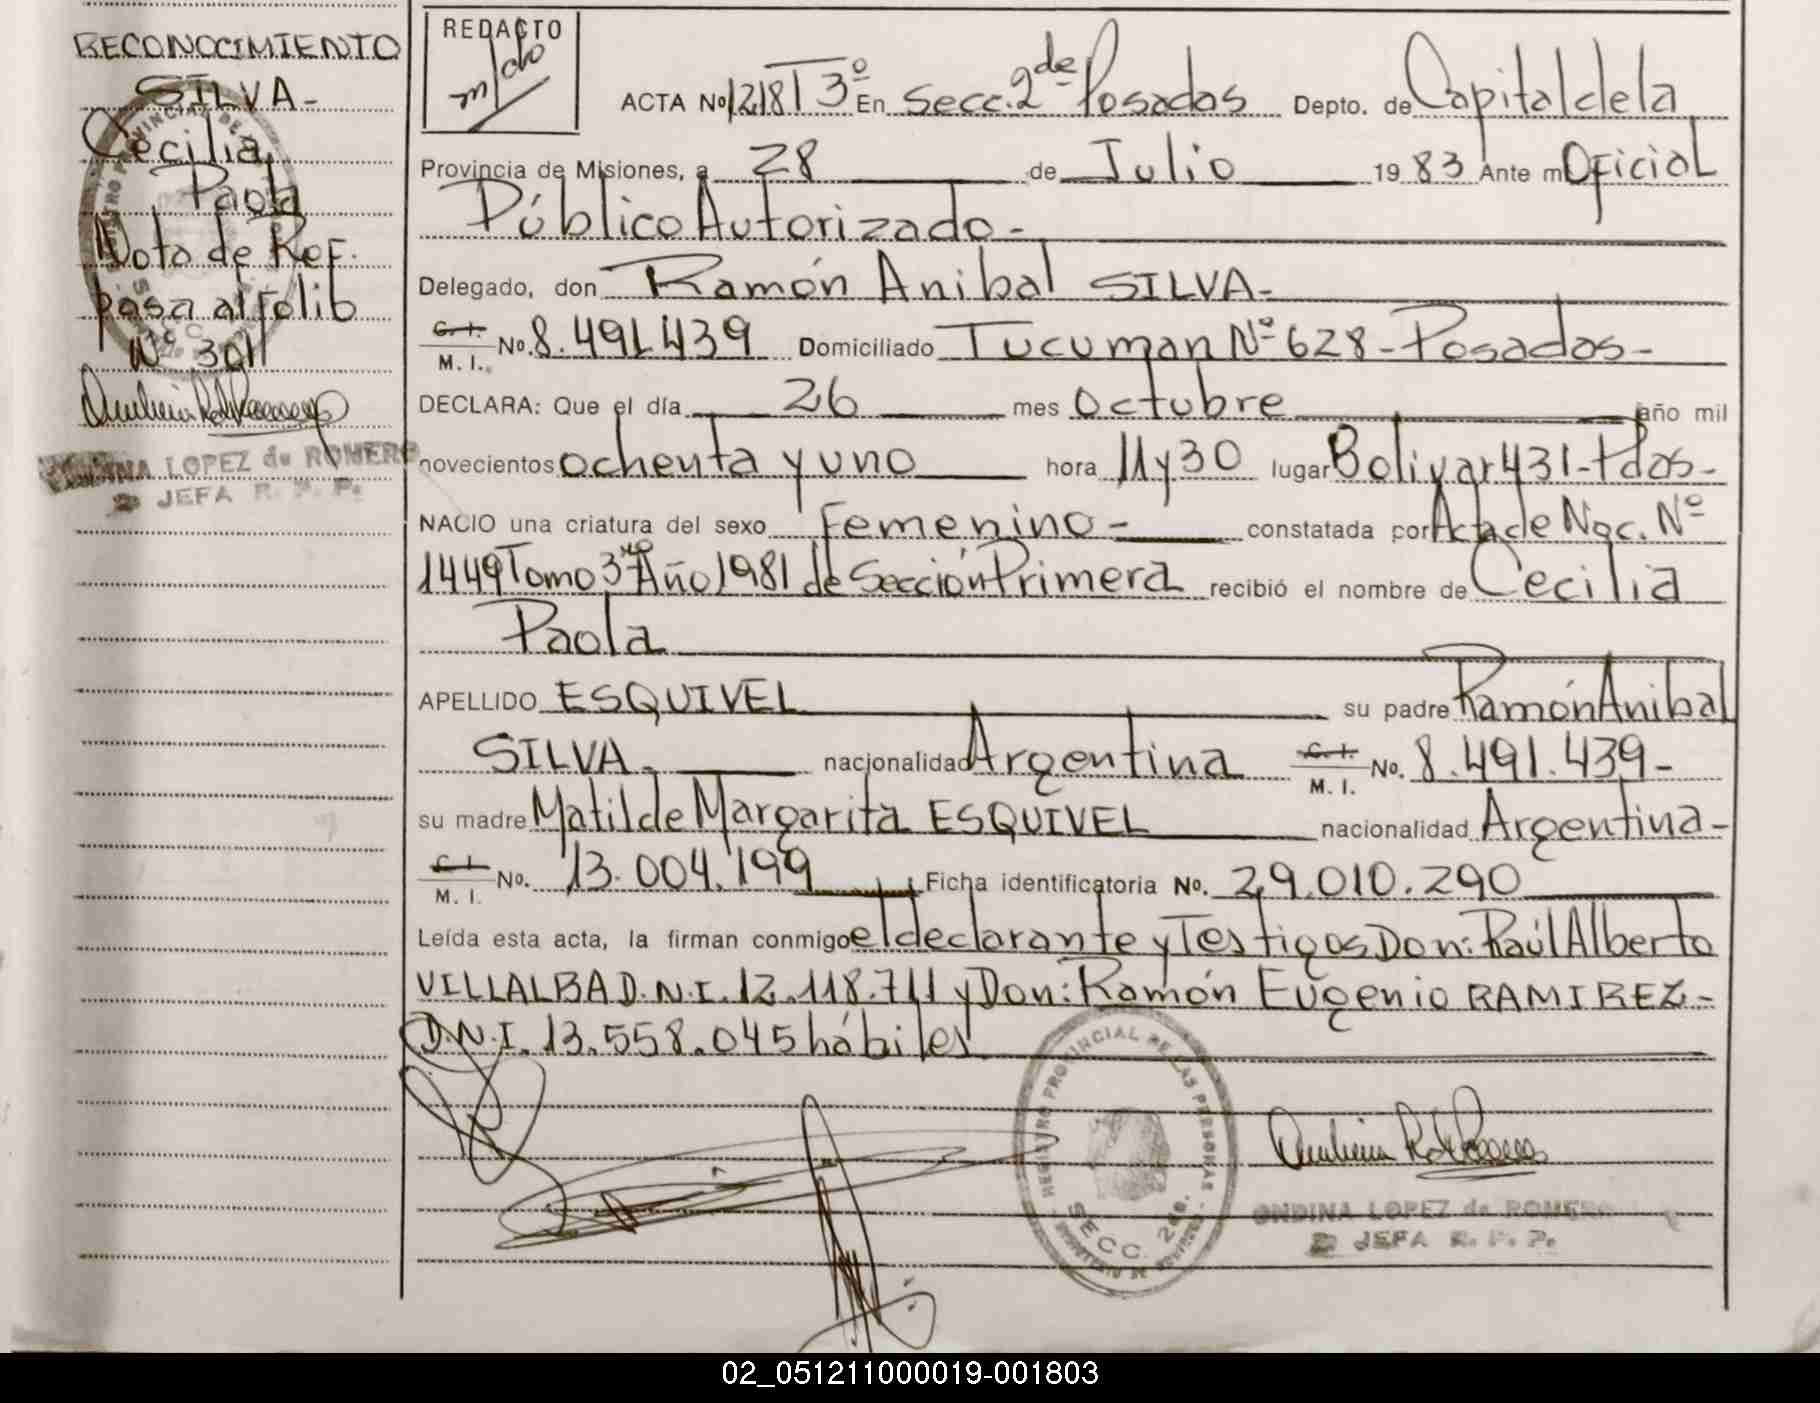 RECONOCIMIENTO
SILVA-
Cecilia
Paola
Nota de Ref.
pasa al folio
Nº 301
LOPEZ de ROMERO
JEFA R. P. P.
REDACTO
ACTA Nº 1218 T 3º En Secc. 2da Posadas Depto. de Capital de la
Provincia de Misiones, a 28 de Julio 1983 Ante mi Oficial
Público Autorizado-
Delegado, don Ramón Anibal SILVA-
C. I. M. I. No. 8.491.439 Domiciliado Tucuman Nº 628-Posadas-
DECLARA: Que el día 26 mes octubre año mil
novecientos ochenta y uno hora 11 y 30 lugar Bolivar 431-Pdas-
NACIO una criatura del sexo Femenino- constatada por Acta de Nac. Nº
1449 Tomo 3ro Año 1981 de Sección Primera recibió el nombre de Cecilia
Paola
APELLIDO ESQUIVEL su padre Ramón Anibal
SILVA- nacionalidad Argentina C. I. M. I. No. 8.491.439-
su madre Matilde Margarita ESQUIVEL nacionalidad Argentina-
C. I. M. I. No. 13.004.199 Ficha identificatoria No. 29.010.290
Leída esta acta, la firman conmigo el declarante y Testigos Don: Raúl Alberto
VILLALBA D.N.I. 12.118.711 y Don: Ramón Eugenio RAMIREZ-
D.N.I. 13.558.045 hábiles
REGISTRO PROVINCIAL DE LAS PERSONAS
SECC. 2da.
ONDINA LOPEZ de ROMERO
JEFA R. P. P.
02_051211000019-001803